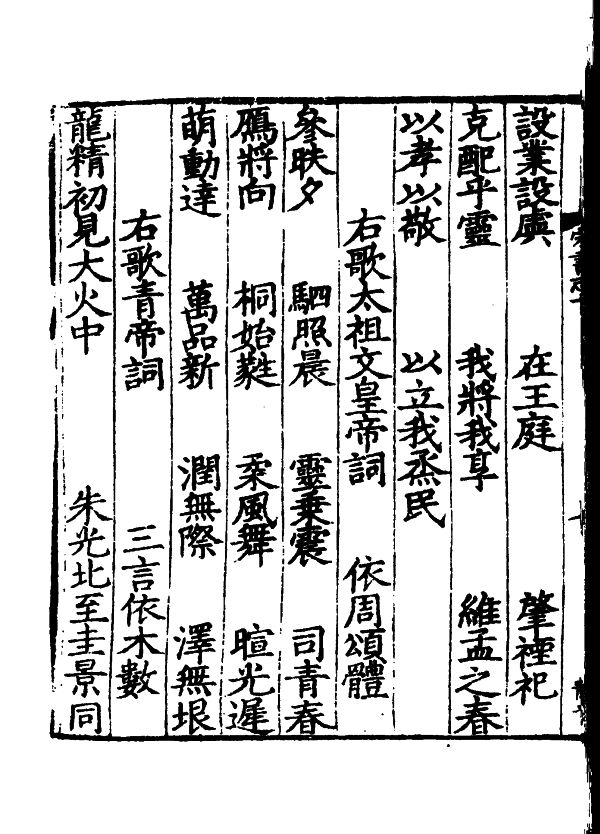 設業設虡　在王庭　肇禋祀
克配乎靈　我將我享　維孟之春
以孝以敬　以立我烝民
右歌太祖文皇帝詞　依周頌體
參映夕　駟照晨　靈乗震　司青春
鴈將向　桐始蕤　柔風舞　暄光遲
萌動達　萬品新　潤無際　澤無垠
右歌青帝詞　三言依木數
龍精初見大火中　朱光北至圭景同